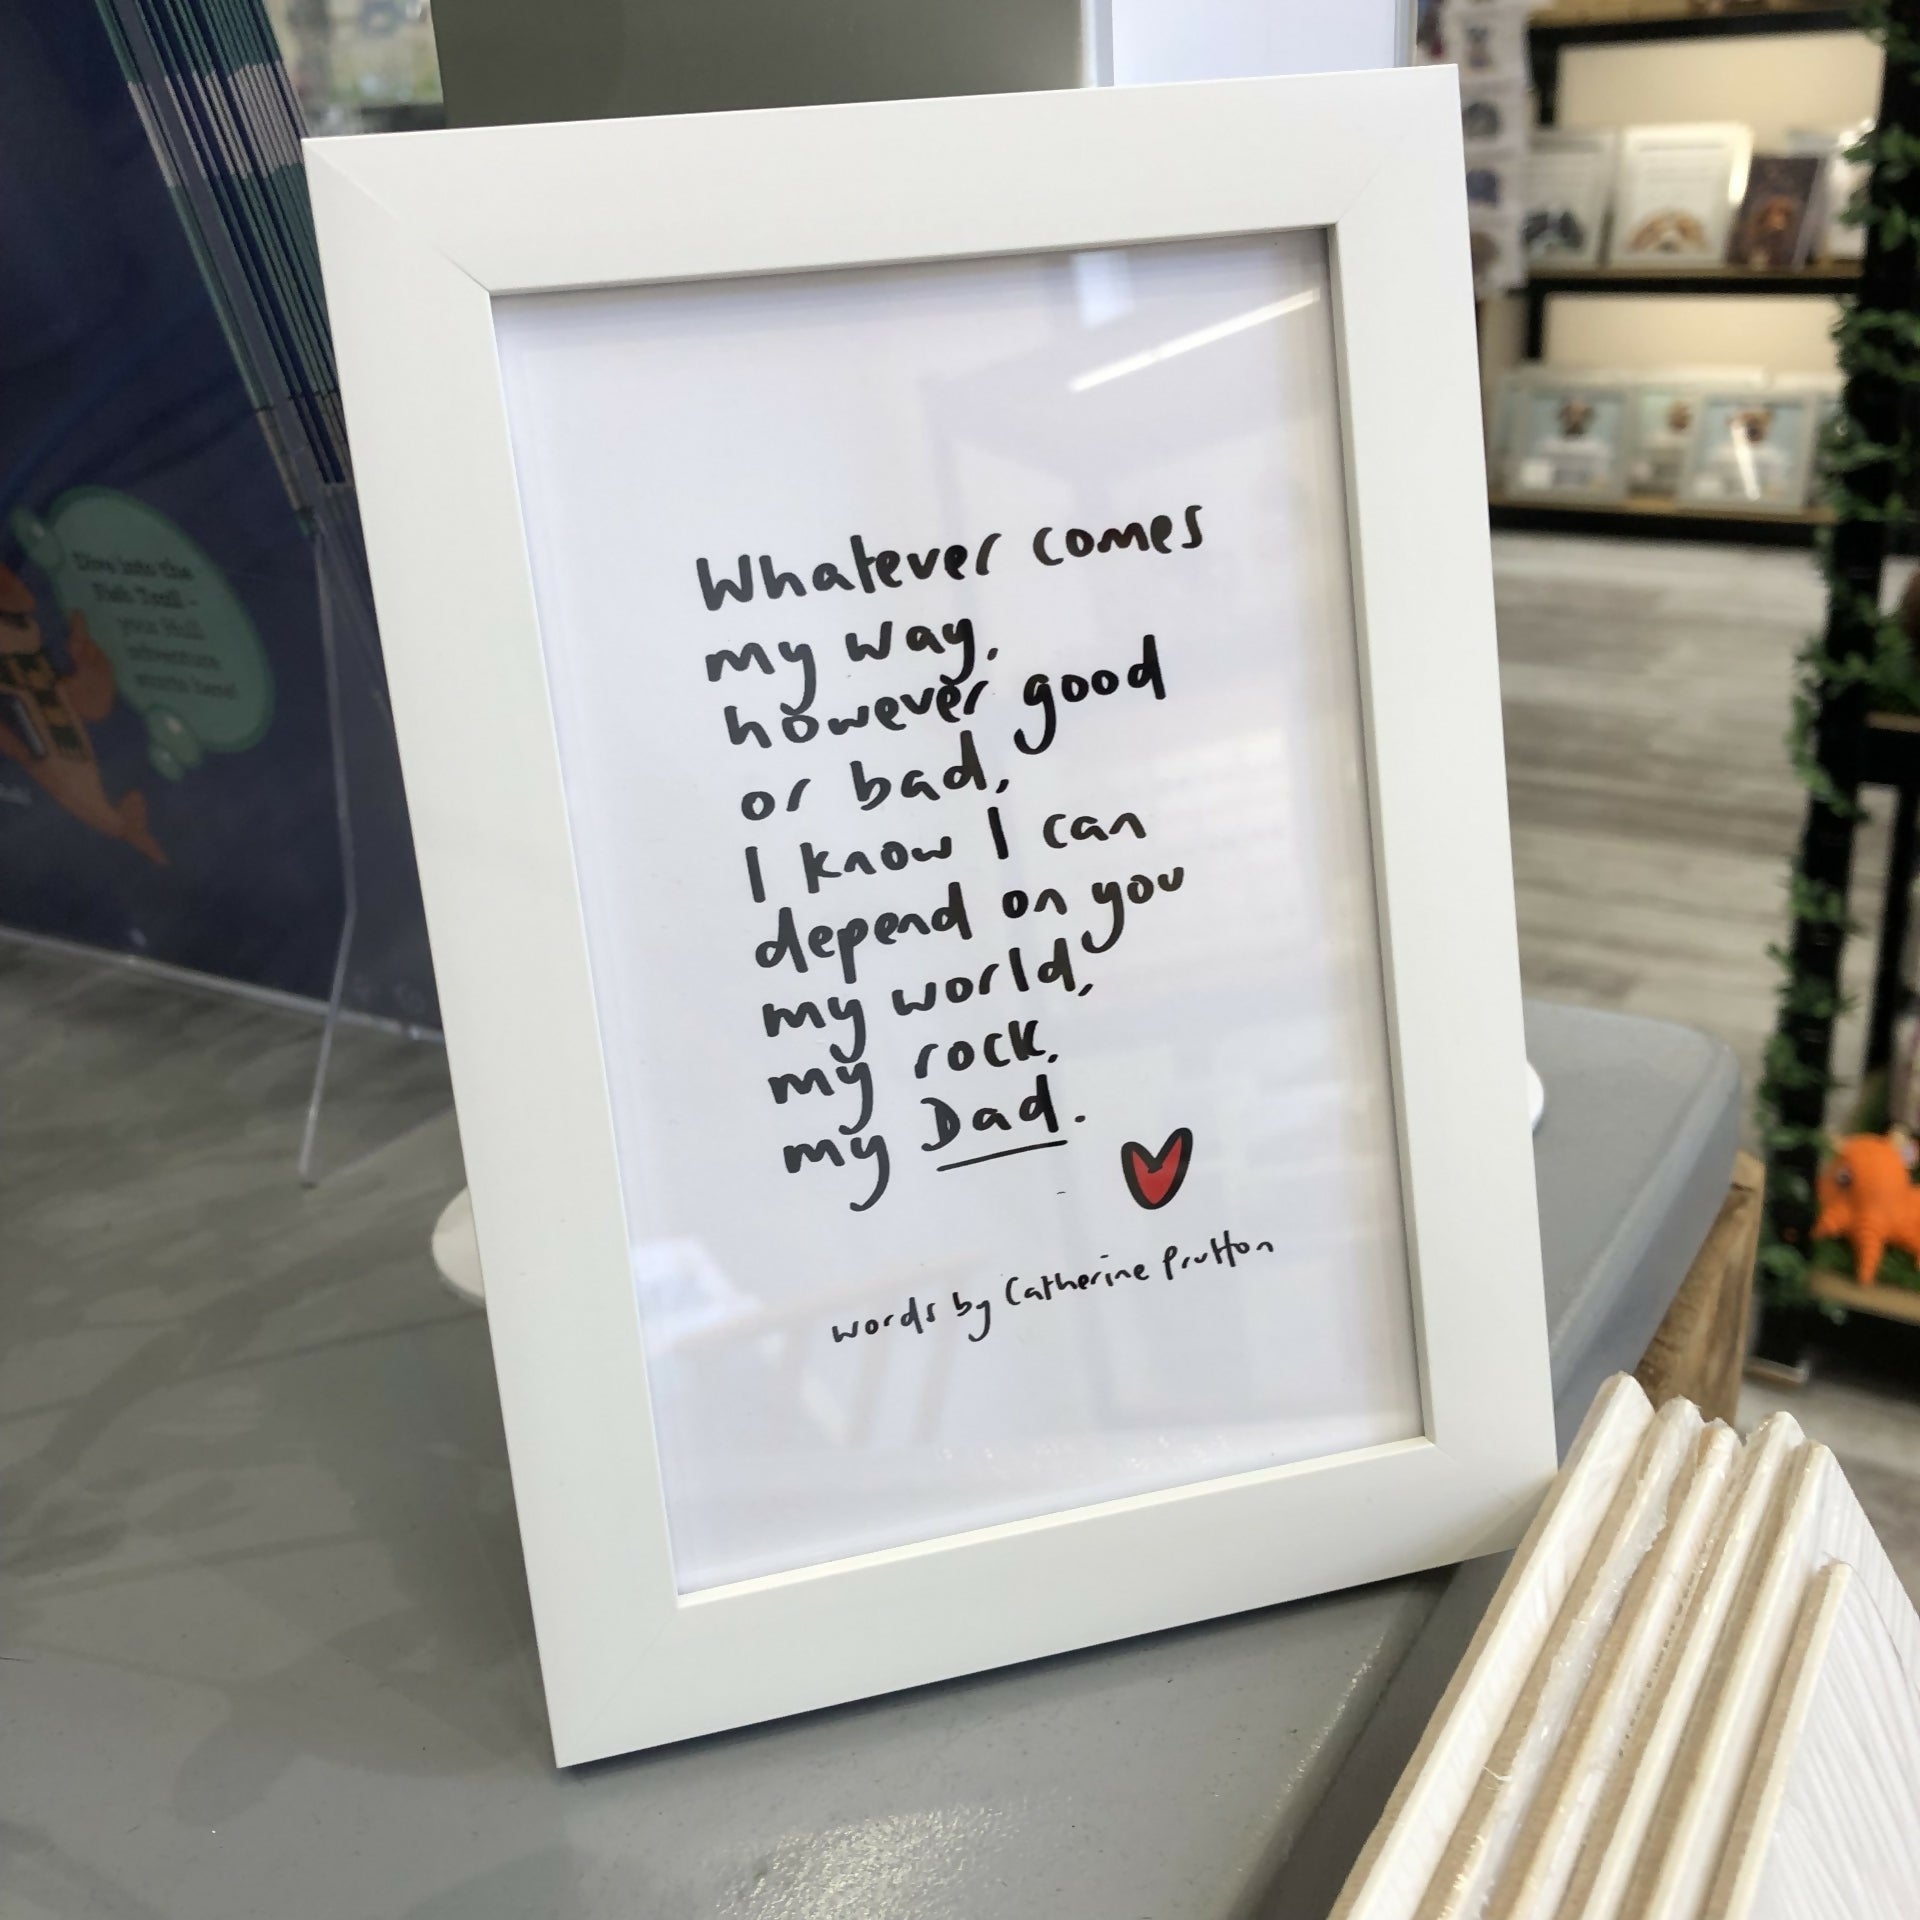 Whatever comes
my way,
however good
or bad,
I know I can
depend on you
my world,
my rock,
my Dad.
words by Catherine Prutton
Dive into the
Fish Trail –
your Hull
adventure
starts here!